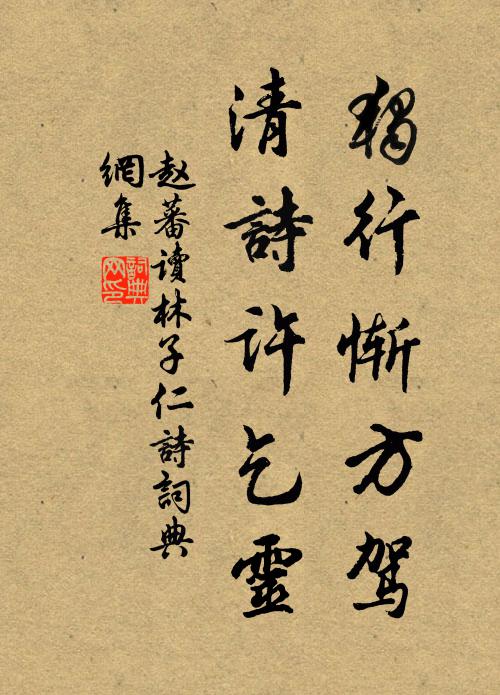 獨行惭方駕
清詩許乞靈
赵蕃讀林子仁詩詞典
網集
詞典
网印